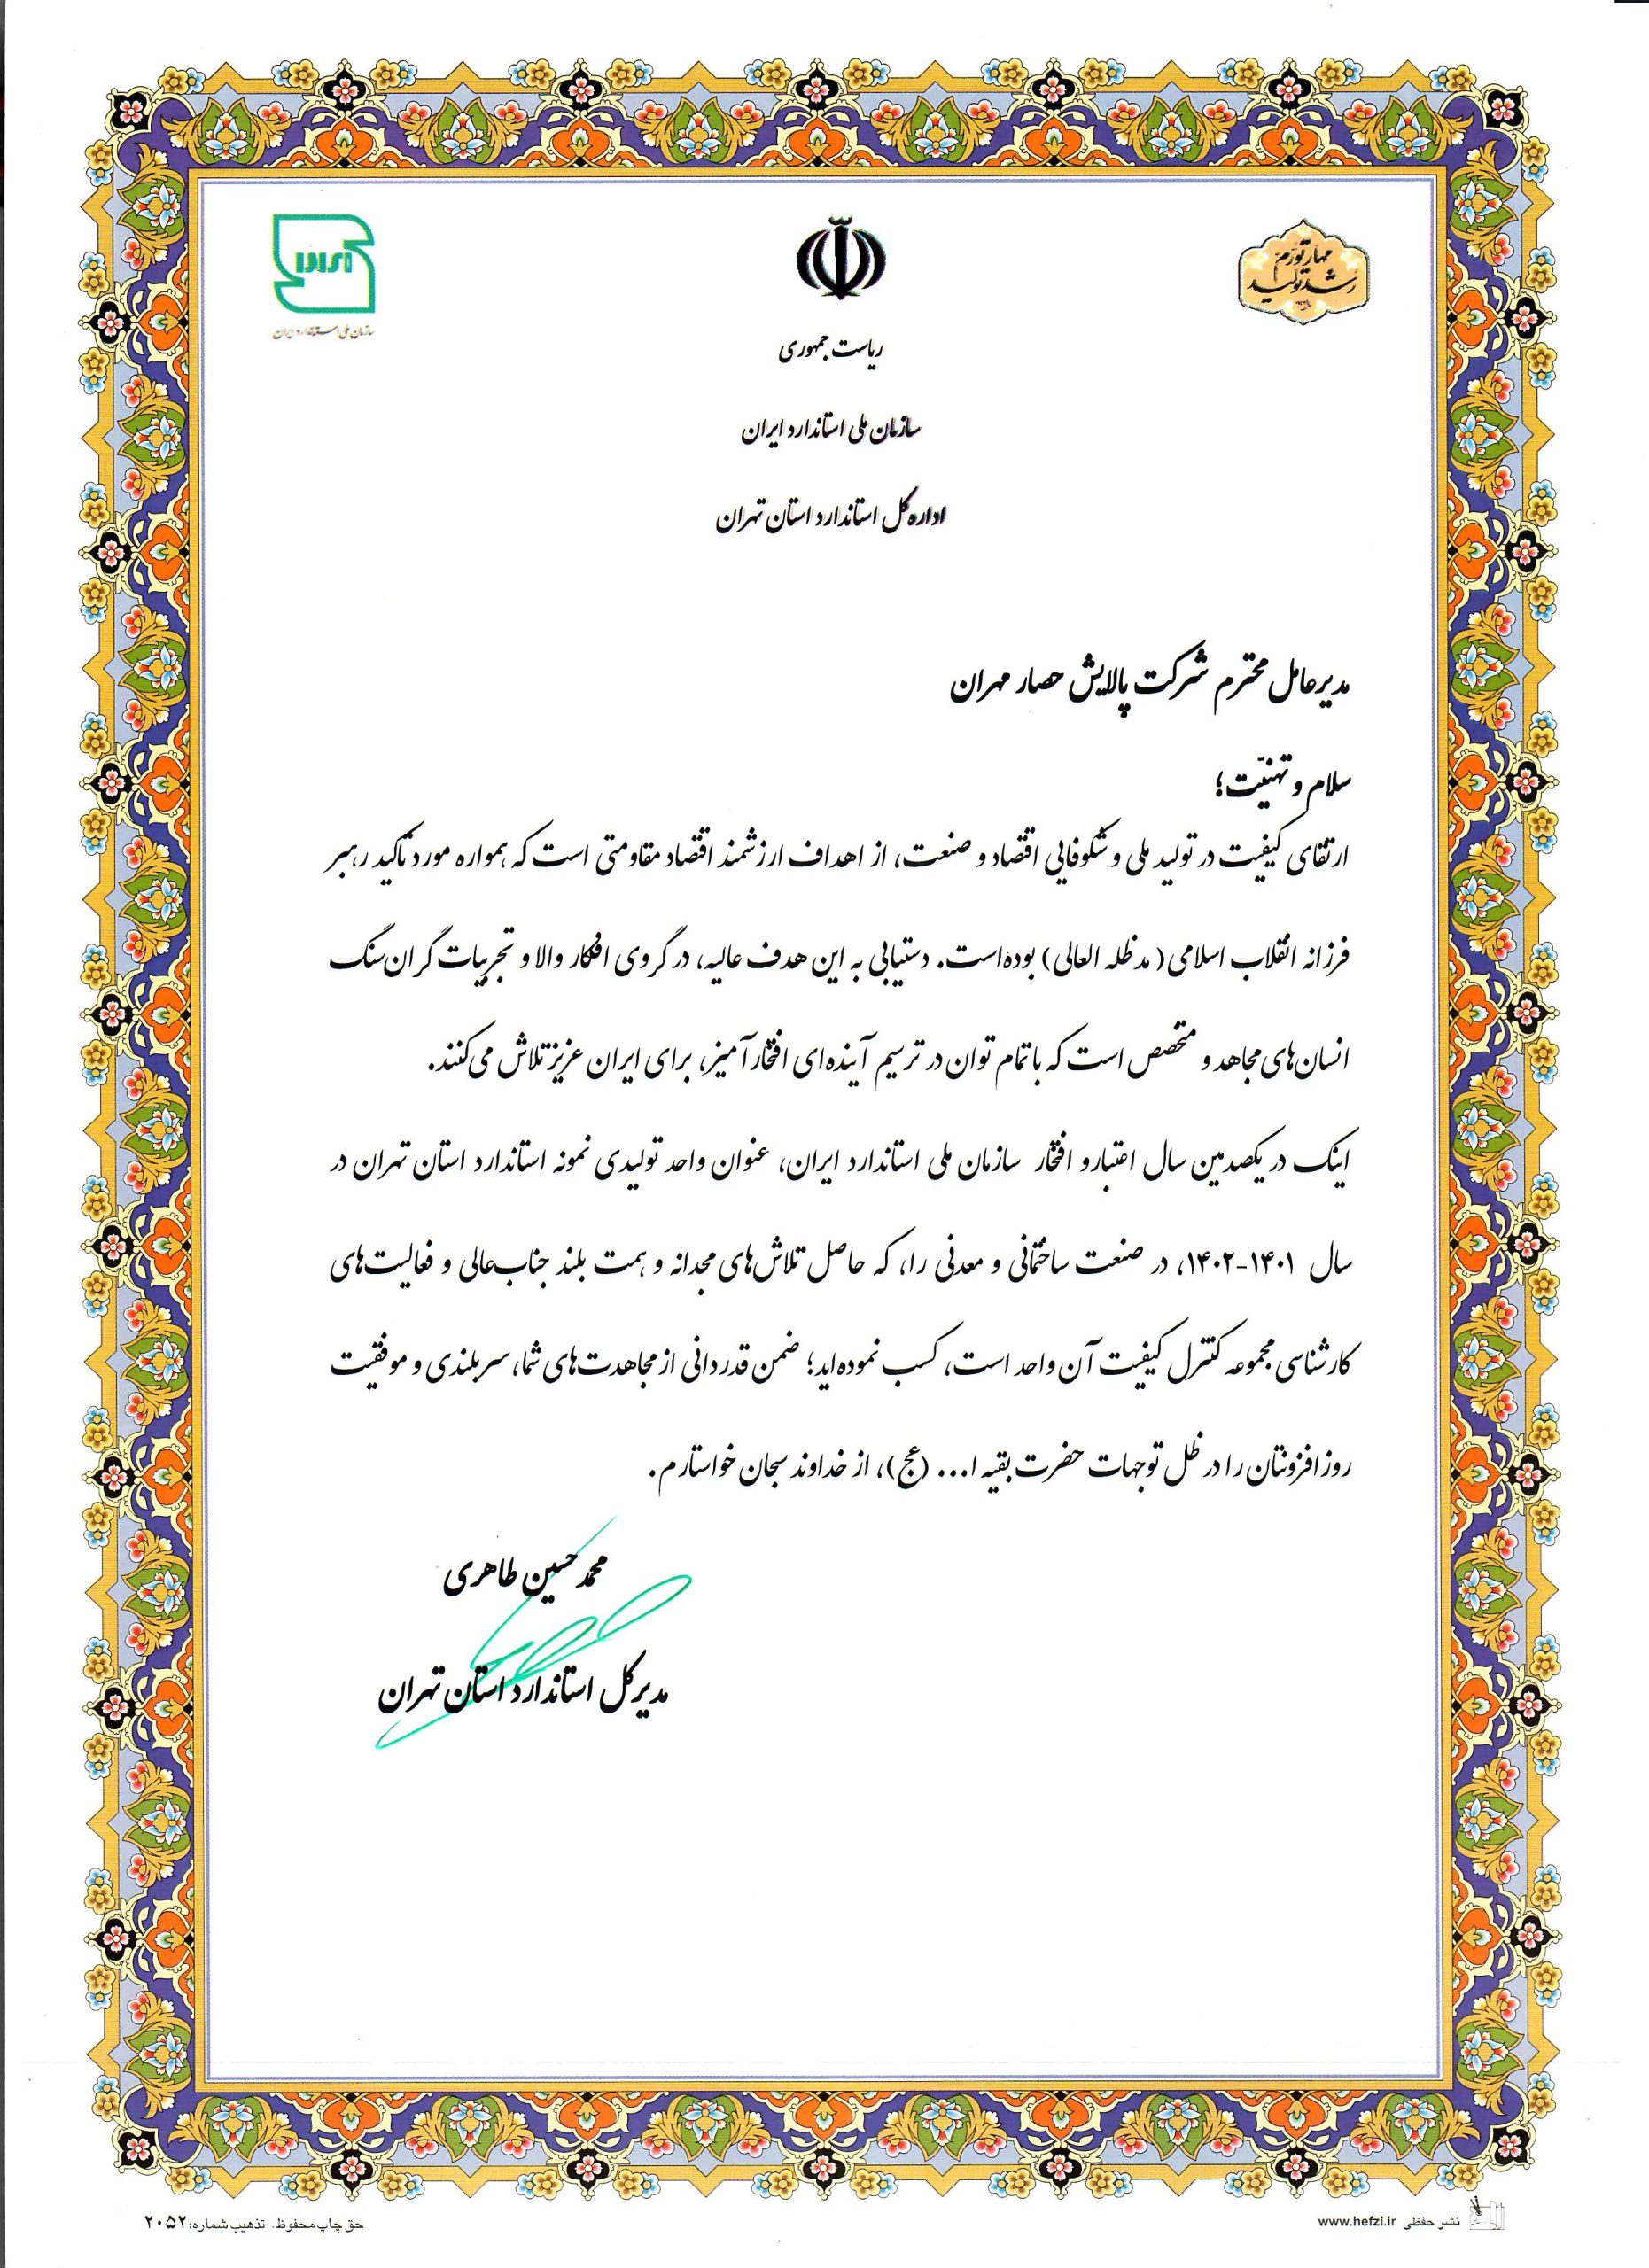 مهار تورم
رشد تولید
ایران
سازمان ملی استاندارد ایران
ریاست جمهوری
سازمان ملی استاندارد ایران
اداره کل استاندارد استان تهران
مدیرعامل محترم شرکت پالایش حصار مهران
سلام و تهنیّت؛
ارتقای کیفیت در تولید ملی و شکوفایی اقتصاد و صنعت، از اهداف ارزشمند اقتصاد مقاومتی است که همواره مورد تاکید رهبر
فرزانه انقلاب اسلامی (مدظله العالی) بوده‌است. دستیابی به این هدف عالیه، در گروی افکار والا و تجربیات گران‌سنگ
انسان‌های مجاهد و متخصص است که با تمام توان در ترسیم آینده‌ای افتخارآمیز، برای ایران عزیز تلاش می‌کنند.
اینک در یکصدمین سال اعتبار و افتخار سازمان ملی استاندارد ایران، عنوان واحد تولیدی نمونه استاندارد استان تهران در
سال ۱۴۰۱-۱۴۰۲، در صنعت ساختمانی و معدنی را، که حاصل تلاش‌های مجدانه و همت بلند جناب‌عالی و فعالیت‌های
کارشناسی مجموعه کنترل کیفیت آن واحد است، کسب نموده‌اید؛ ضمن قدردانی از مجاهدت‌های شما، سربلندی و موفقیت
روزافزونتان را در ظل توجهات حضرت بقیه ا... (عج)، از خداوند سبحان خواستارم.
محمد حسین طاهری
مدیرکل استاندارد استان تهران
نشر حفظی www.hefzi.ir
حق چاپ محفوظ. تذهیب شماره: ۲۰۵۲